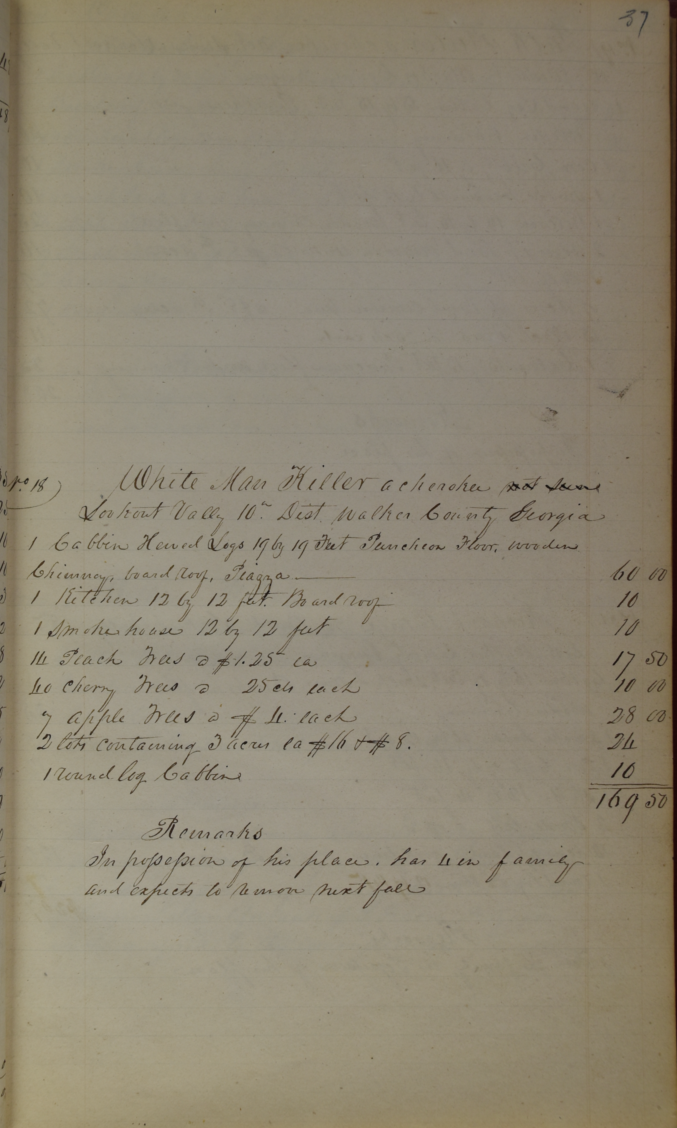 37
No 18) White Man Killer a cherokee
Lookout Vally 10th Dist. Walker County Georgia
1 Cabbin Hewed Logs 19 by 19 Feet Puncheon Floor, wooden
Chimney, board roof, Piazza — 60 00
1 Kitchen 12 by 12 feet. Board roof 10
1 Smoke house 12 by 12 feet 10
14 Peach Trees a $1.25 ea 17 50
40 cherry Trees a 25 cts each 10 00
7 apple Trees a $4. each 28 00
2 lots containing 3 acres ea $16 & $8. 24
1 round log Cabbin 10
169 50
Remarks
In possession of his place. has 4 in family
and expects to remove next fall